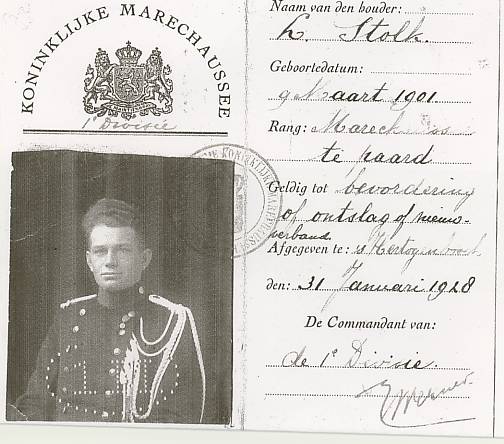 KONINKLIJKE MARECHAUSSEE
1e Divisie
Naam van den houder:
L. Stolk.
Geboortedatum:
9 Maart 1901.
Rang: Marechaussee
te paard
Geldig tot bevordering
of ontslag of nieuw
verband.
Afgegeven te: 's Hertogenbosch
den: 31 Januari 1928
De Commandant van:
de 1e Divisie.